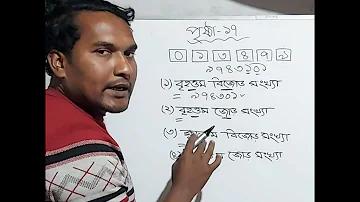 পৃষ্ঠা-১৭
০ ১ ৩ ৪ ৭ ৯
৯৭৪৩১০১
(১) বৃহত্তম বিজোড় সংখ্যা
= ৯৭৪৩০১
(২) বৃহত্তম জোড় সংখ্যা
=
(৩) বিজোড় সংখ্যা
=
জোড় সংখ্যা